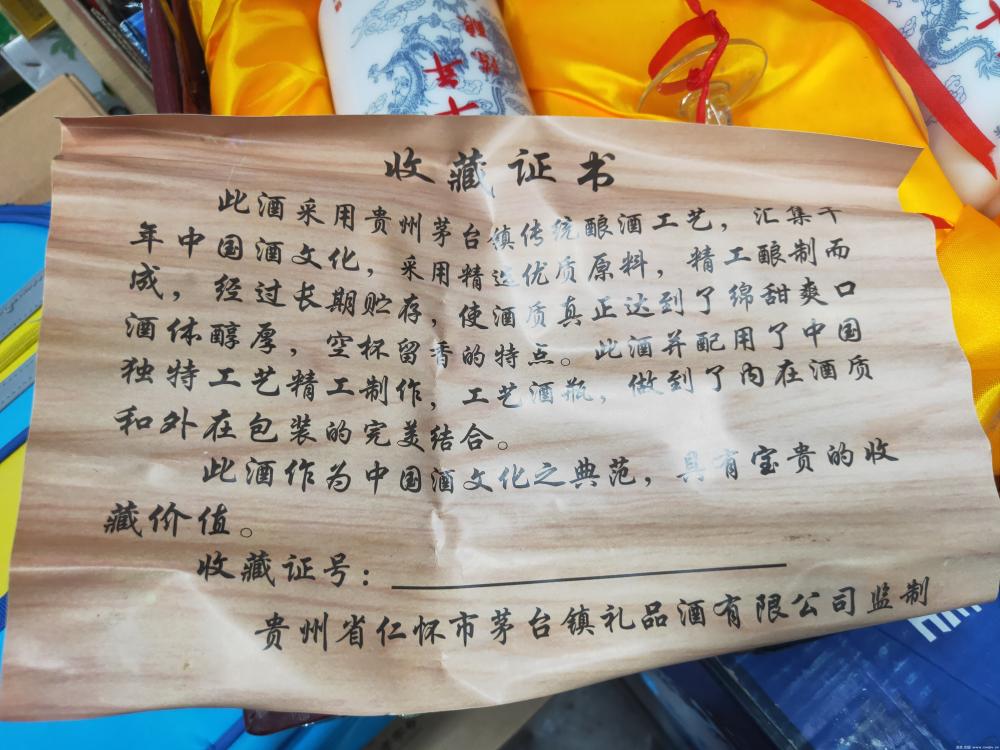 收藏证书
此酒采用贵州茅台镇传统酿酒工艺，汇集千
年中国酒文化，采用精选优质原料，精工酿制而
成，经过长期贮存，使酒质真正达到了绵甜爽口
酒体醇厚，空杯留香的特点。此酒并配用了中国
独特工艺精工制作，工艺酒瓶，做到了内在酒质
和外在包装的完美结合。
此酒作为中国酒文化之典范，具有宝贵的收
藏价值。
收藏证号：
贵州省仁怀市茅台镇礼品酒有限公司监制